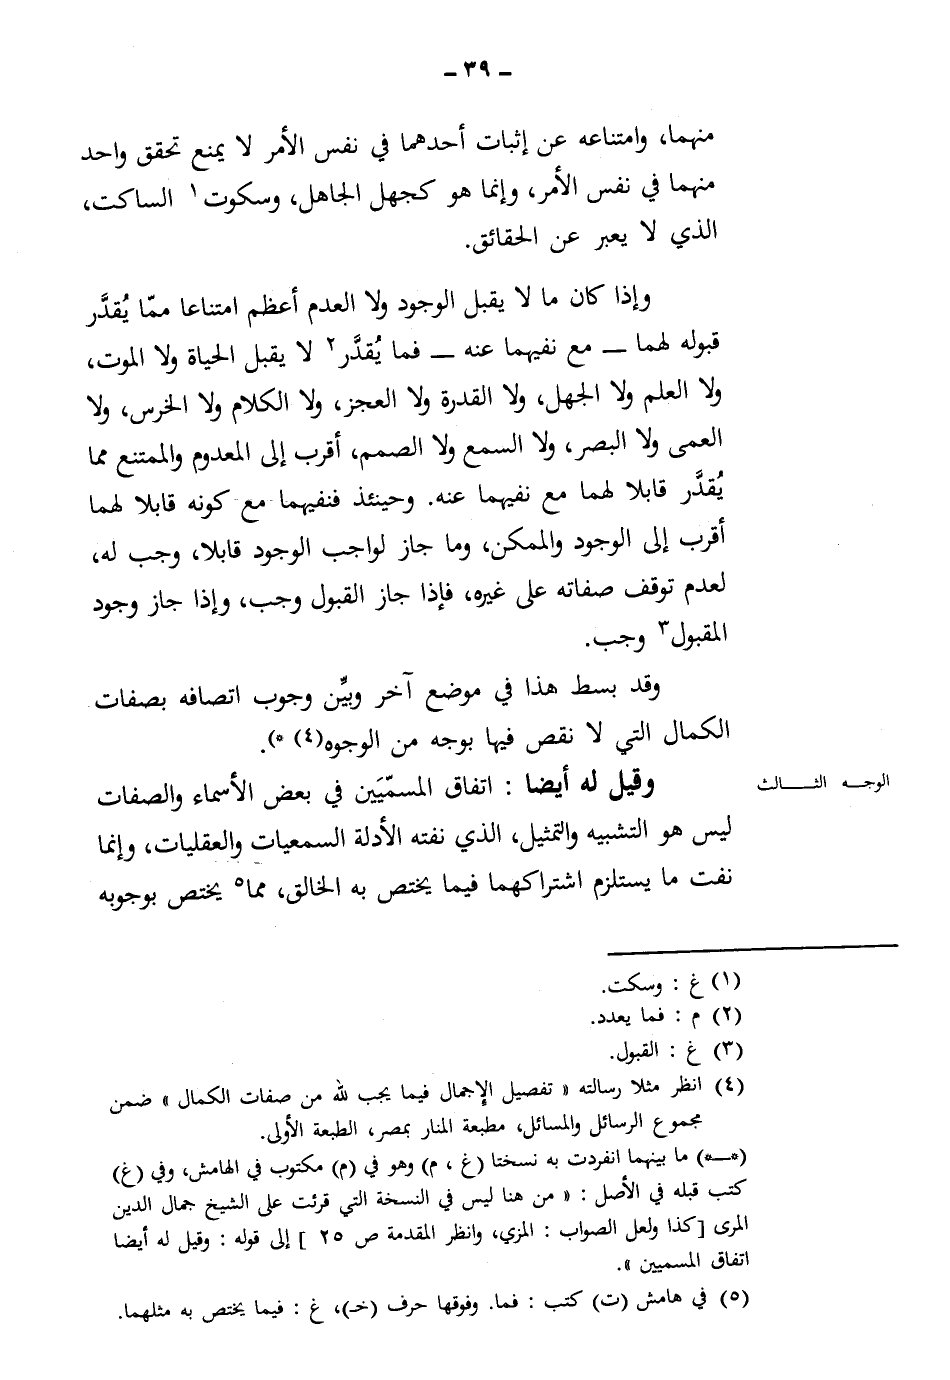 ـ ٣٩ ـ
منهما، وامتناعه عن إثبات أحدهما في نفس الأمر لا يمنع تحقق واحد
منهما في نفس الأمر، وإنما هو كجهل الجاهل، وسكوت ١ الساكت،
الذي لا يعبر عن الحقائق.
وإذا كان ما لا يقبل الوجود ولا العدم أعظم امتناعا ممّا يُقدَّر
قبوله لهما ـ مع نفيهما عنه ـ فما يُقدَّر ٢ لا يقبل الحياة ولا الموت،
ولا العلم ولا الجهل، ولا القدرة ولا العجز، ولا الكلام ولا الخرس، ولا
العمى ولا البصر، ولا السمع ولا الصمم، أقرب إلى المعدوم والممتنع مما
يُقدَّر قابلا لهما مع نفيهما عنه. وحينئذ فنفيهما مع كونه قابلا لهما
أقرب إلى الوجود والممكن، وما جاز لواجب الوجود قابلا، وجب له،
لعدم توقف صفاته على غيره، فإذا جاز القبول وجب، وإذا جاز وجود
المقبول ٣ وجب.
وقد بسط هذا في موضع آخر وبيِّن وجوب اتصافه بصفات
الكمال التي لا نقص فيها بوجه من الوجوه(٤) *).
الوجه الثالث
وقيل له أيضا : اتفاق المسمّيَين في بعض الأسماء والصفات
ليس هو التشبيه والتمثيل، الذي نفته الأدلة السمعيات والعقليات، وإنما
نفت ما يستلزم اشتراكهما فيما يختص به الخالق، مما ٥ يختص بوجوبه
(١) غ : وسكت.
(٢) م : فما يعدد.
(٣) غ : القبول.
(٤) انظر مثلا رسالته « تفصيل الإجمال فيما يجب لله من صفات الكمال » ضمن
مجموع الرسائل والمسائل، مطبعة المنار بمصر، الطبعة الأولى.
(*ـ*) ما بينهما انفردت به نسختا (غ ، م) وهو في (م) مكتوب في الهامش، وفي (غ)
كتب قبله في الأصل : « من هنا ليس في النسخة التي قرئت على الشيخ جمال الدين
المرى [كذا ولعل الصواب : المزي، وانظر المقدمة ص ٢٥ ] إلى قوله : وقيل له أيضا
اتفاق المسميين ».
(٥) في هامش (ت) كتب : فما. وفوقها حرف (خـ)، غ : فيما يختص به مثلهما.